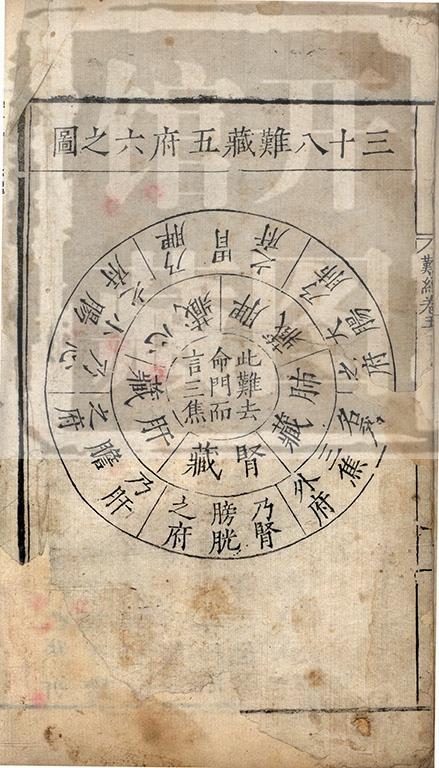 三十八難藏五府六之圖
此難去
命門而
言三焦
脾藏
肺藏
腎藏
肝藏
心藏
乃脾胃之府
乃肺大腸之府
名為三焦外府
乃腎膀胱之府
乃肝膽之府
乃心小腸之府
難經卷五